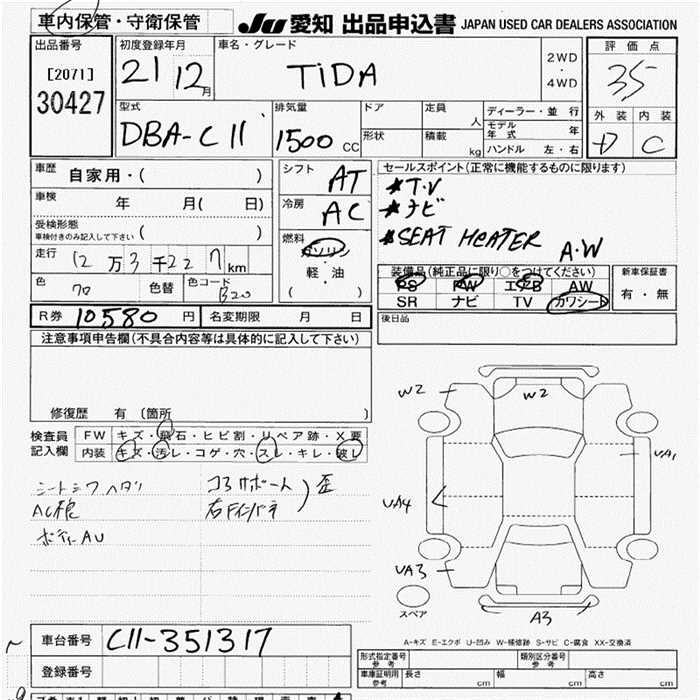 車内保管・守衛保管 JU 愛知 出品申込書 JAPAN USED CAR DEALERS ASSOCIATION
出品番号 初度登録年月 車名・グレード 2WD ・ 4WD 評価点
[2071] 21 12月 TiDA 35
30427
型式 排気量 ドア 定員 人 ディーラー・並 行 外装 内装
DBA-C11 1500 CC 形状 積載 kg モデル年式 年 D C
ハンドル 左・右
車歴 自家用・( ) シフト AT セールスポイント(正常に機能するものに限ります)
車検 年 月( 日) 冷房 AC *T.V
*ナビ
受検形態 車検付きのみ記入して下さい ( ) 燃料 ガソリン *SEAT HEATER A.W
走行 12万3千22 km 軽・油 装備品(純正品に限り○をつけてください) 新車保証書
色 クロ 色替 色コード B20 ( ) PS PW エアB AW 有・無
SR ナビ TV カワシート
R券 10580 円 名変期限 月 日 後日品
注意事項申告欄(不具合内容等は具体的に記入して下さい)
W2 W2
修復歴 有 (箇所 )
検査員 FW キズ・飛石・ヒビ割・リペア跡・X要
記入欄 内装 キズ・汚レ・コゲ・穴・スレ・キレ・破レ
UA1
シートシワヘタリ コアサポート 歪
UA4
AC
ボディAU
UA3
スペア A3
A-キズ E-エクボ U-凹み W-補修跡 S-サビ C-腐食 XX-交換済
車台番号 C11-351317
登録番号
形式指定番号 参考 類別区分番号 参考
車庫証明用 参考 長さ cm 幅 cm 高さ cm